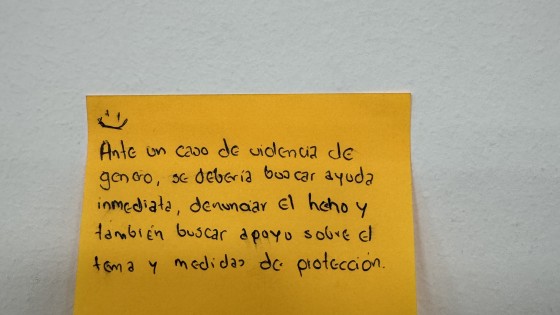 Ante un caso de violencia de
genero, se debería buscar ayuda
inmediata, denunciar el heho y
también buscar apoyo sobre el
tema y medidas de protección.